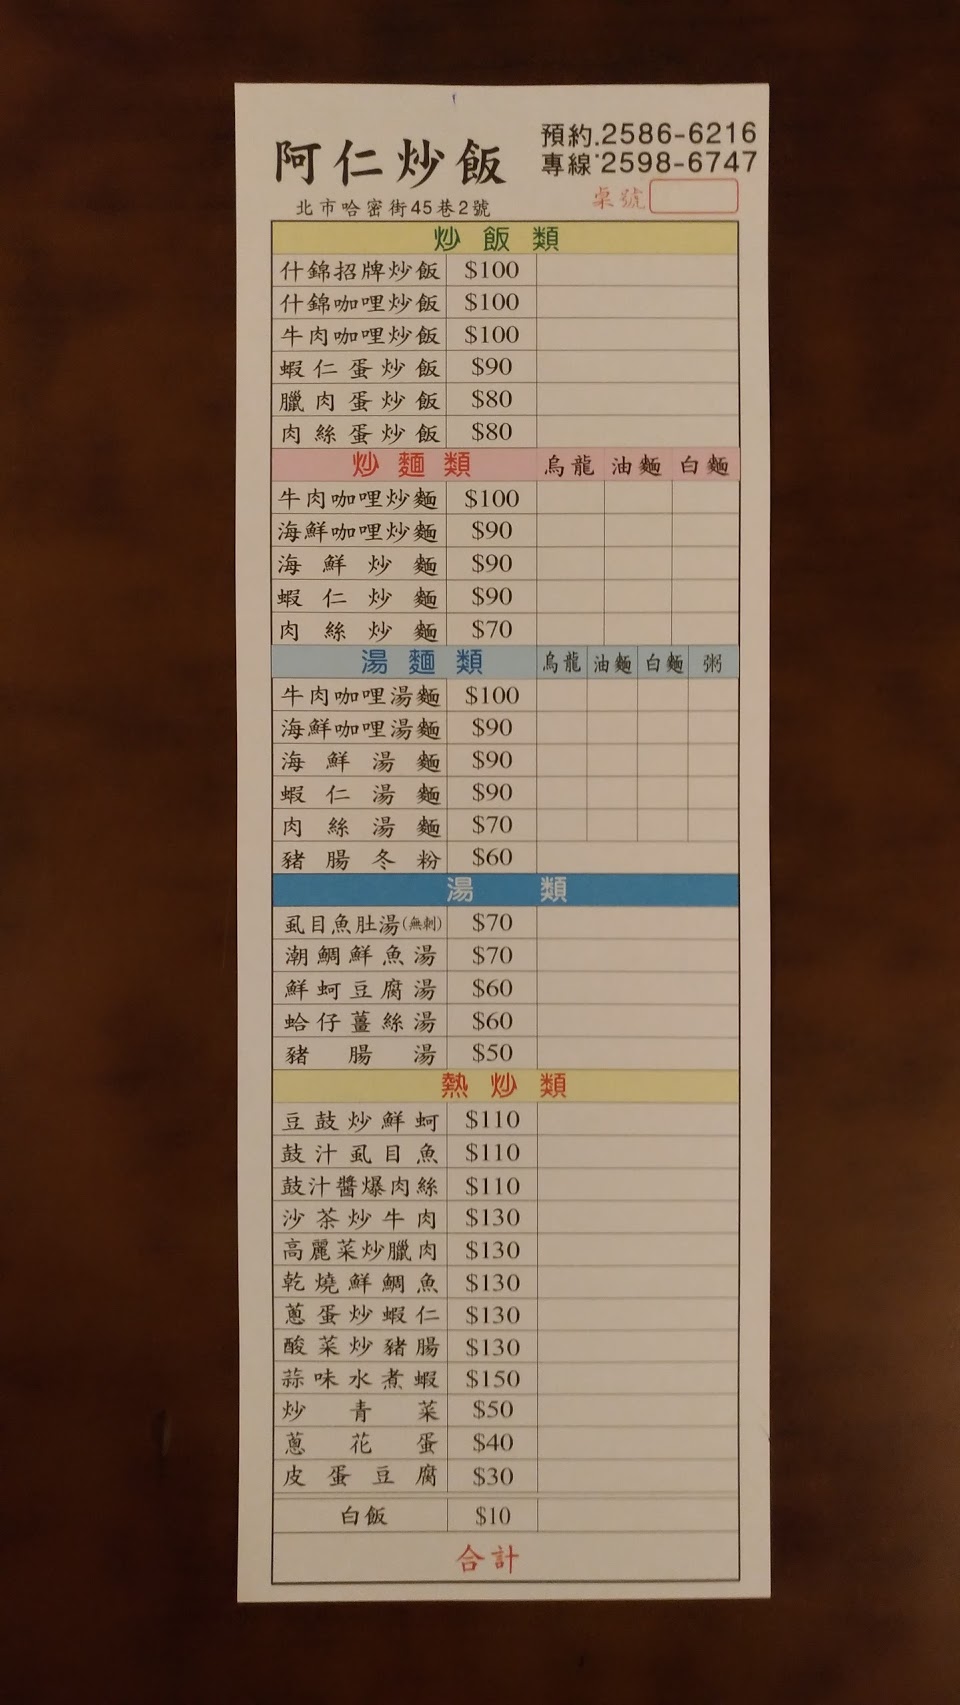 阿仁炒飯
預約.2586-6216
專線 2598-6747
北市哈密街45巷2號
桌號
炒飯類
什錦招牌炒飯 $100
什錦咖哩炒飯 $100
牛肉咖哩炒飯 $100
蝦仁蛋炒飯 $90
臘肉蛋炒飯 $80
肉絲蛋炒飯 $80
炒麵類 烏龍 油麵 白麵
牛肉咖哩炒麵 $100
海鮮咖哩炒麵 $90
海鮮炒麵 $90
蝦仁炒麵 $90
肉絲炒麵 $70
湯麵類 烏龍 油麵 白麵 粥
牛肉咖哩湯麵 $100
海鮮咖哩湯麵 $90
海鮮湯麵 $90
蝦仁湯麵 $90
肉絲湯麵 $70
豬腸冬粉 $60
湯類
虱目魚肚湯(無刺) $70
潮鯛鮮魚湯 $70
鮮蚵豆腐湯 $60
蛤仔薑絲湯 $60
豬腸湯 $50
熱炒類
豆鼓炒鮮蚵 $110
鼓汁虱目魚 $110
鼓汁醬爆肉絲 $110
沙茶炒牛肉 $130
高麗菜炒臘肉 $130
乾燒鮮鯛魚 $130
蔥蛋炒蝦仁 $130
酸菜炒豬腸 $130
蒜味水煮蝦 $150
炒青菜 $50
蔥花蛋 $40
皮蛋豆腐 $30
白飯 $10
合計